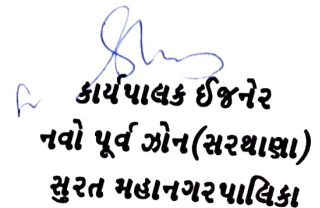 કાર્યપાલક ઈજનેર
નવો પૂર્વ ઝોન(સરથાણા)
સુરત મહાનગરપાલિકા